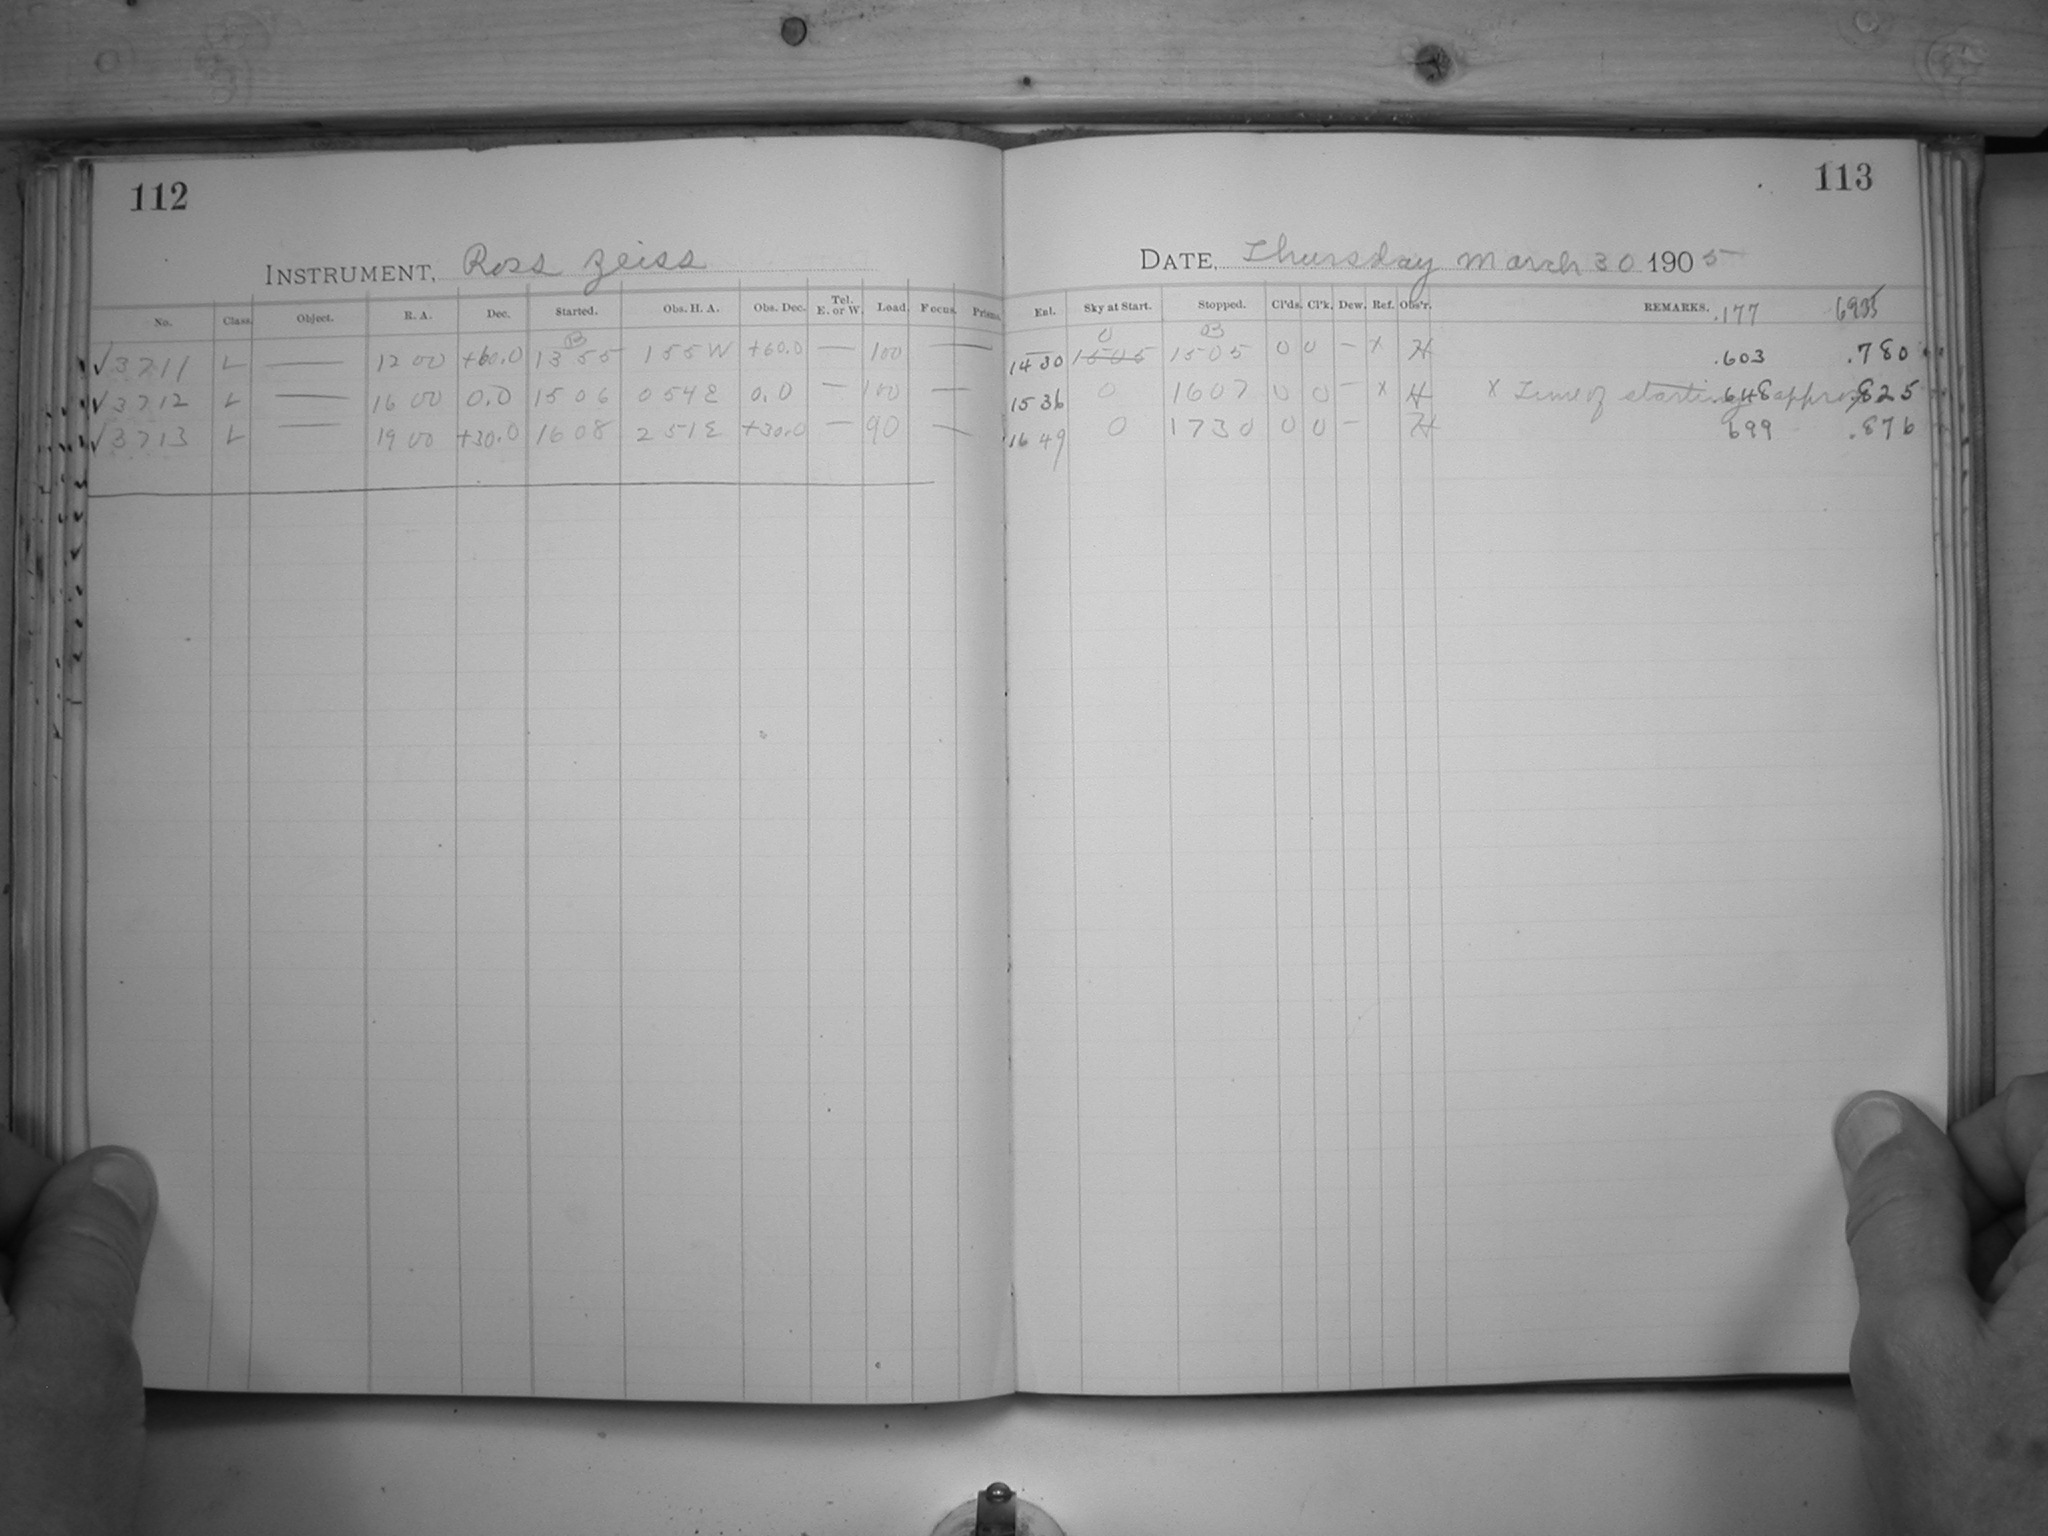 112
INSTRUMENT, Ross Zeiss
No. Class. Object. R. A. Dec. Started. Obs. H. A. Obs. Dec. Tel. E. or W. Load. Focus. Prisms.
B
√3711 L — 12 00 +60.0 13 55 1 55 W +60.0 — 100 —
√3712 L — 16 00 0.0 15 06 0 54 E 0.0 — 100 —
√3713 L — 19 00 +30.0 16 08 2 51 E +30.0 — 90 —
113
DATE, Thursday March 30 1905
Ext. Sky at Start. Stopped. Cl'ds. Cl'k. Dew. Ref. Obs'r. REMARKS. .177 6935
0
14 30 1505 1505 0 0 — x H .603 .780
15 36 0 1607 0 0 — x H x Time of starting approx. .648 .825
16 49 0 1730 0 0 — H 699 .876